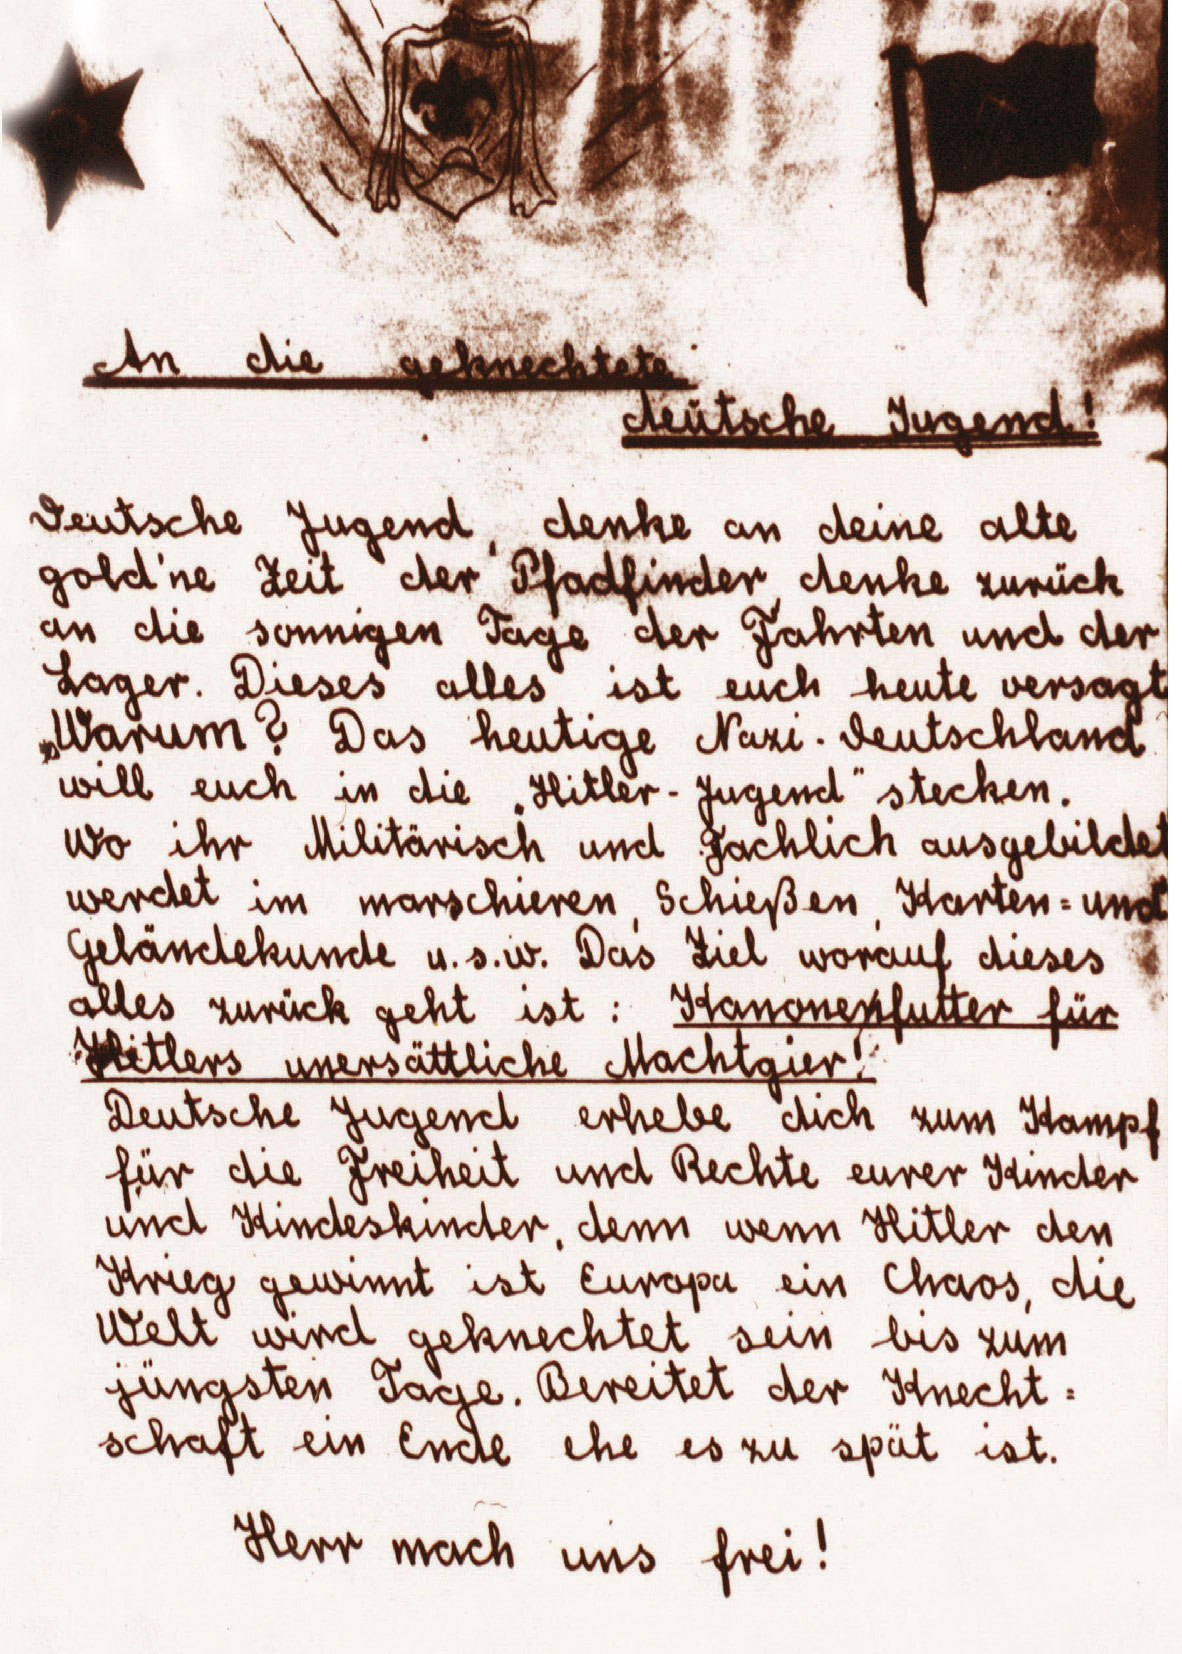 An die geknechtete
deutsche Jugend!
Deutsche Jugend, denke an deine alte
gold'ne Zeit der Pfadfinder, denke zurück
an die sonnigen Tage der Fahrten und der
Lager. Dieses alles ist euch heute versagt
„Warum? Das heutige Nazi-Deutschland
will euch in die „Hitler-Jugend" stecken.
Wo ihr Militärisch und Fachlich ausgebildet
werdet im marschieren, Schießen, Karten= und
Geländekunde u.s.w. Das Ziel worauf dieses
alles zurück geht ist: Kanonenfutter für
Hitlers unersättliche Machtgier!
Deutsche Jugend erhebe dich zum Kampf
für die Freiheit und Rechte eurer Kinder
und Kindeskinder, denn wenn Hitler den
Krieg gewinnt ist Europa ein Chaos, die
Welt wird geknechtet sein bis zum
jüngsten Tage. Bereitet der Knecht=
schaft ein Ende ehe es zu spät ist.
Herr mach uns frei!